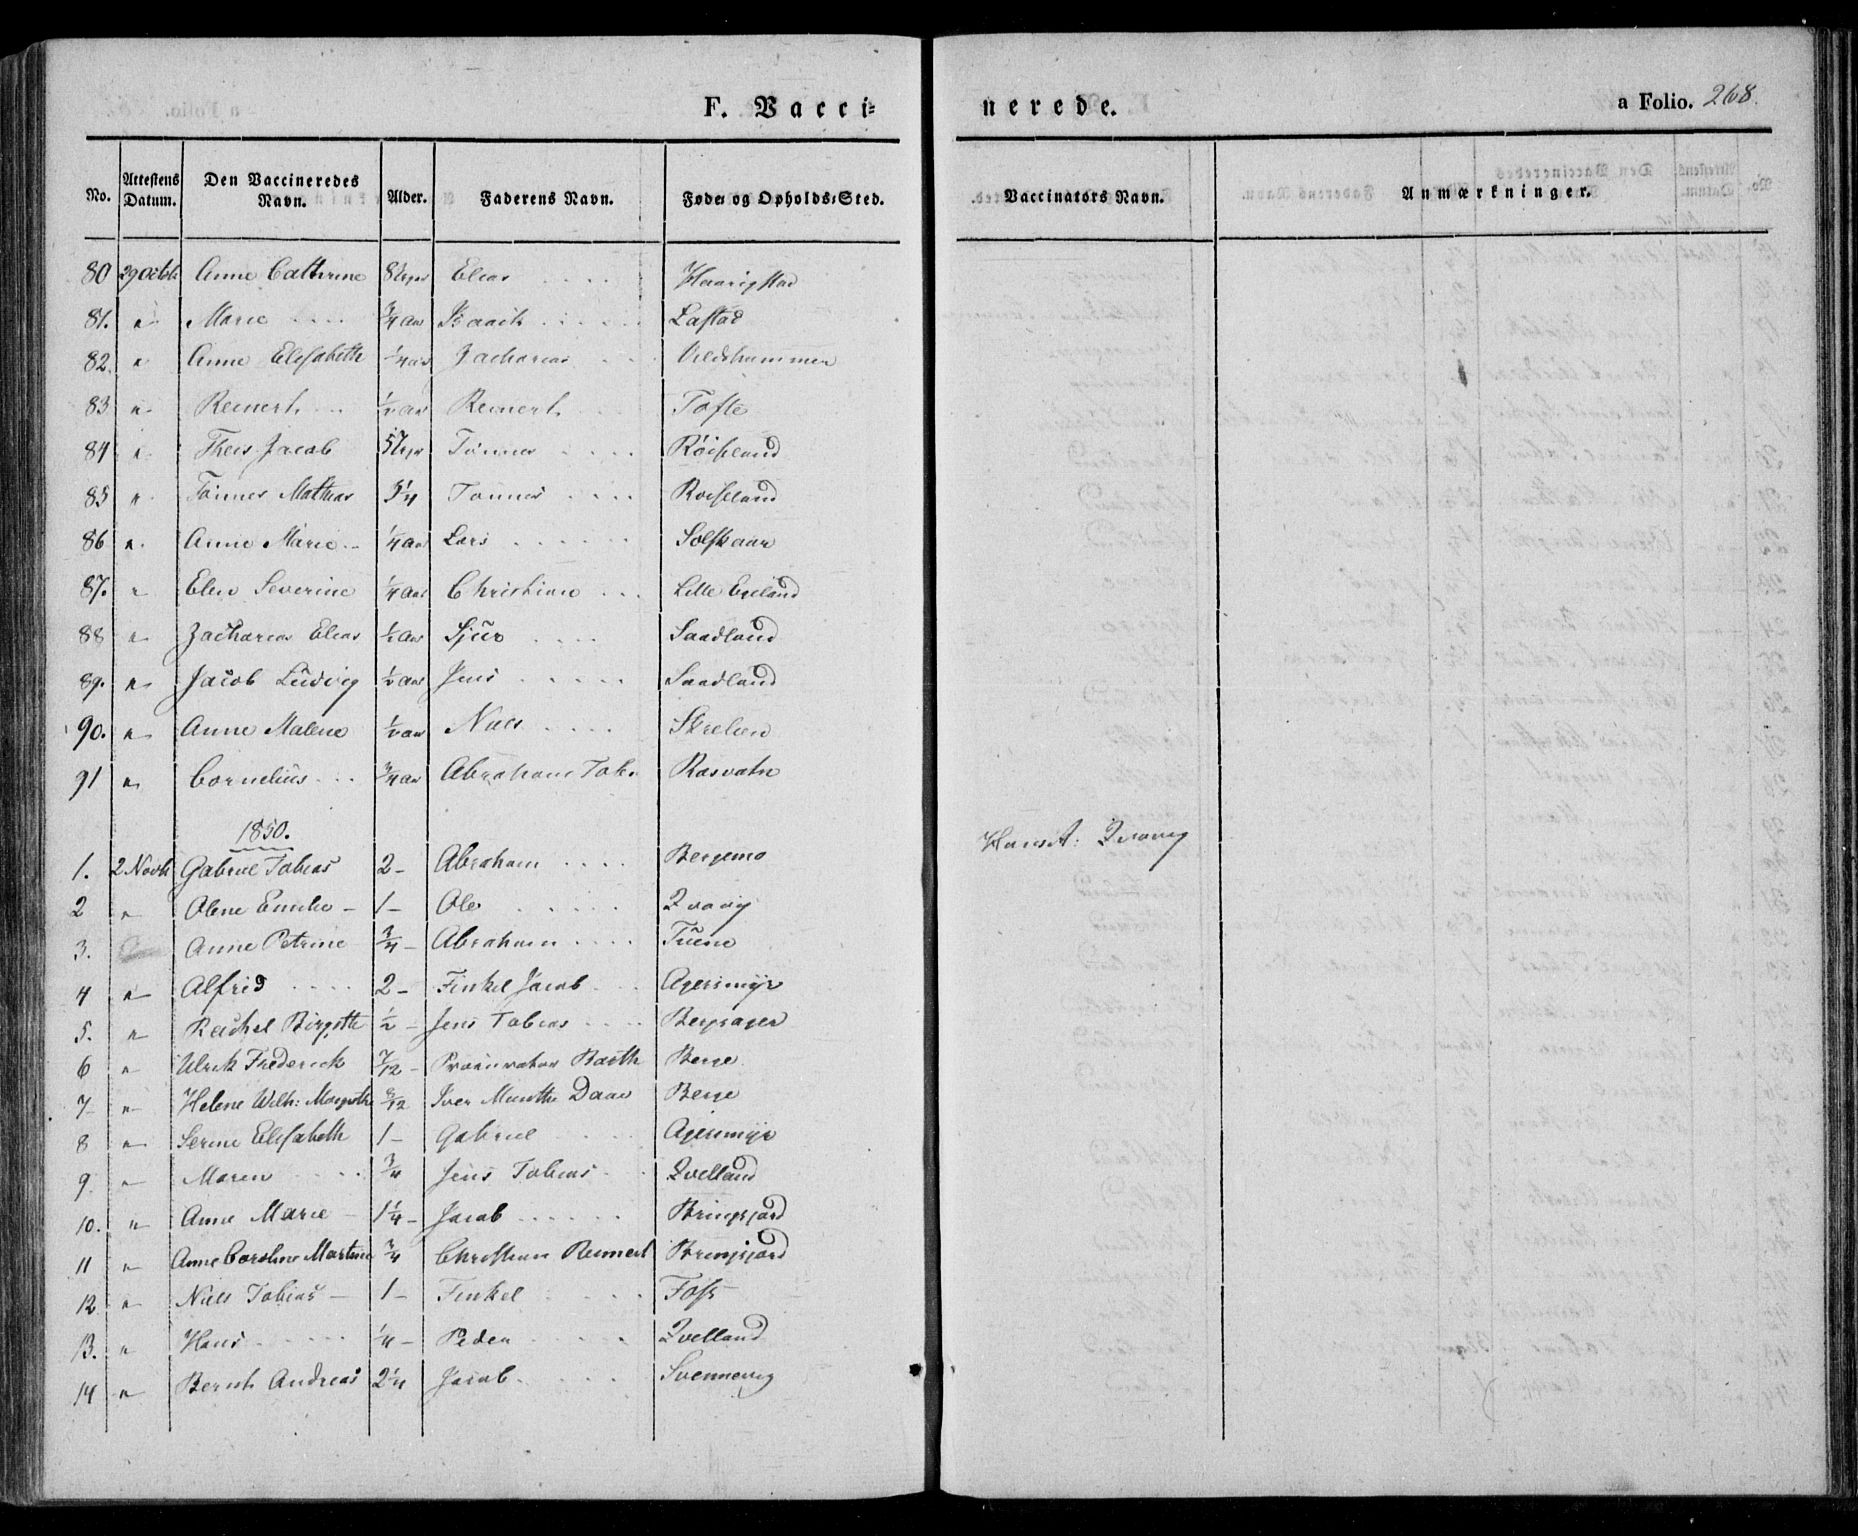 F. Vacci=
nerede.
a Folio. 268.
No. Attestens Datum. Den Vaccineredes Navn. Alder. Faderens Navn. Føde= og Opholds=Sted. Vaccinators Navn. Anmærkninger.
80 29 Octbr Anne Cathrine Elias
81. " Marie 3/4 aar Isaach Lastad
82. " Anne Elisabeth 1/4 aar Zacharias Udshammer
83 " Reinert 1/2 aar Reinert Tofte
84 " Theis Jacob Tønnes Røiseland
85 " Tønnes Mathias 5 1/4 Tønnes Røiseland
86 " Anne Marie 1/4 aar Lars Solskaar
87. " Elen Severine 1/4 aar Christian Lille Eseland
88 " Zacharias Elias 1/2 aar Sjur Saadland
89. " Jacob Ludvig 1/2 aar Jens Saadland
90. " Anne Malene 1/2 aar Niels Skrelien
91 " Cornelius 3/4 aar Abraham Tob. Rosvatn
1850.
1. 2 Novbr Gabriel Tobias 2 - Abraham Bergemo Hans A:
2 " Olene Emilie - 1 - Ole
3. Anne Petrine 3/4 - Abraham Tuene
4 " Alfred 2 - Tinkel Jacob Agersmyr
5. " Rachel Birgitte 1/2 - Jens Tobias Bergsager
6 " Ulrik Frederick 7/12 - Procurator Barth Berge
7 " Helene Wilh: Margrethe 8/12 Iver Munthe Daae Berge
8 " Serine Elisabeth 1 - Gabriel Agersmyr
9. " Maren 3/4 Jens Tobias Qvelland
10. " Anne Marie - 1 1/4 - Jacob Bringsjord
11 " Anne Caroline Martine 3/4 Christian Reinert Bringsjord
12 " Niels Tobias - 1 - Tinkel Foss
13. " Hans 1/4 - Peder Qvelland
14 " Bernt Andreas 2 1/4 Jacob Svennevig